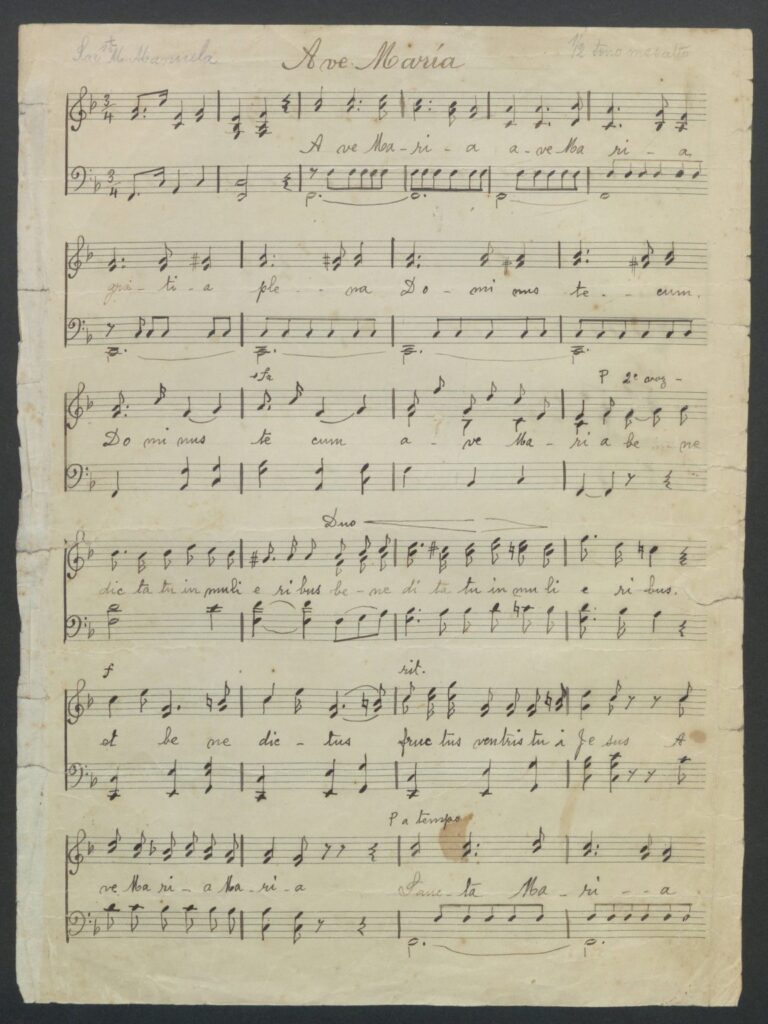 M. Manuela Ave María 1/2 tono mas alto
A ve Ma - ri - a a - ve Ma ri - a
gra - ti - a ple - - na Do - mi nus te - - cum.
Fa P 2ª
Do mi nus te cum a - ve Ma - ri a be ne
Duo
dic ta tu in muli e ri bus be - ne di ta tu in mu li e ri bus.
f rit.
et be ne dic - tus fruc tus ventris tu i Je sus A
P a tempo
ve Ma ri - a Ma - ri - a Sanc - ta Ma - ri - - a